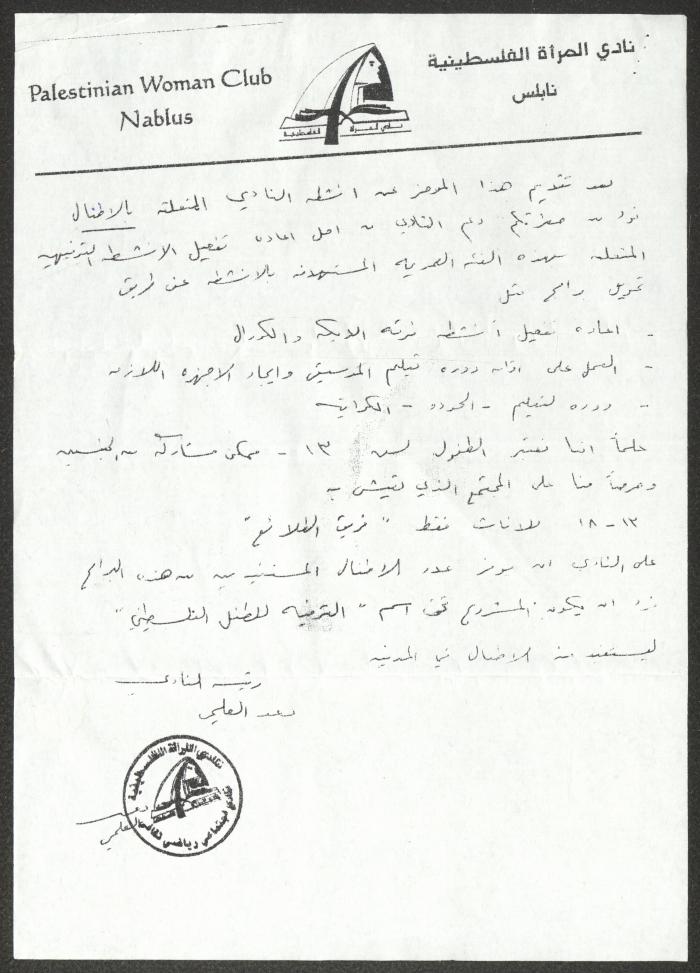 Palestinian Woman Club
Nablus
نادي المرأة الفلسطينية
نابلس
نادي المرأة الفلسطينية
بعد تقديم هذا الموجز عن انشطه النادي المتعلقه بالاطفال
نود من حضرتكم دعم النادي من اجل اعاده تفعيل الانشطه الترفيهيه
المتعلقه بهذه الفئه العمريه المستهدفه بالانشطه عن طريق
تمويل برامج مثل
- اعاده تفعيل أنشطه فرقه الدبكه والكورال
- العمل على دوره تعليم الموسيقى وايجاد الاجهزه اللازمه
- دوره لتعليم - الجودو - الكراتيه
علماً اننا نعتبر الطفول لسن ١٣ - ممكن مشاركه من الجنسين
وحرصاً منا على المجتمع الذي نعيش به
١٣ - ١٨ للاناث فقط " فريق الطلائع "
على النادي ان يوفر عدد الاطفال المستفيدين من هذه البرامج
نود ان يكون المشروع تحت اسم " الترفيه للطفل الفلسطيني "
ليستفيد منه الاطفال في المدينه
رئيسه النادي
رعد العلمي
نادي المرأة الفلسطينية
نادي اجتماعي رياضي ثقافي
العلمي